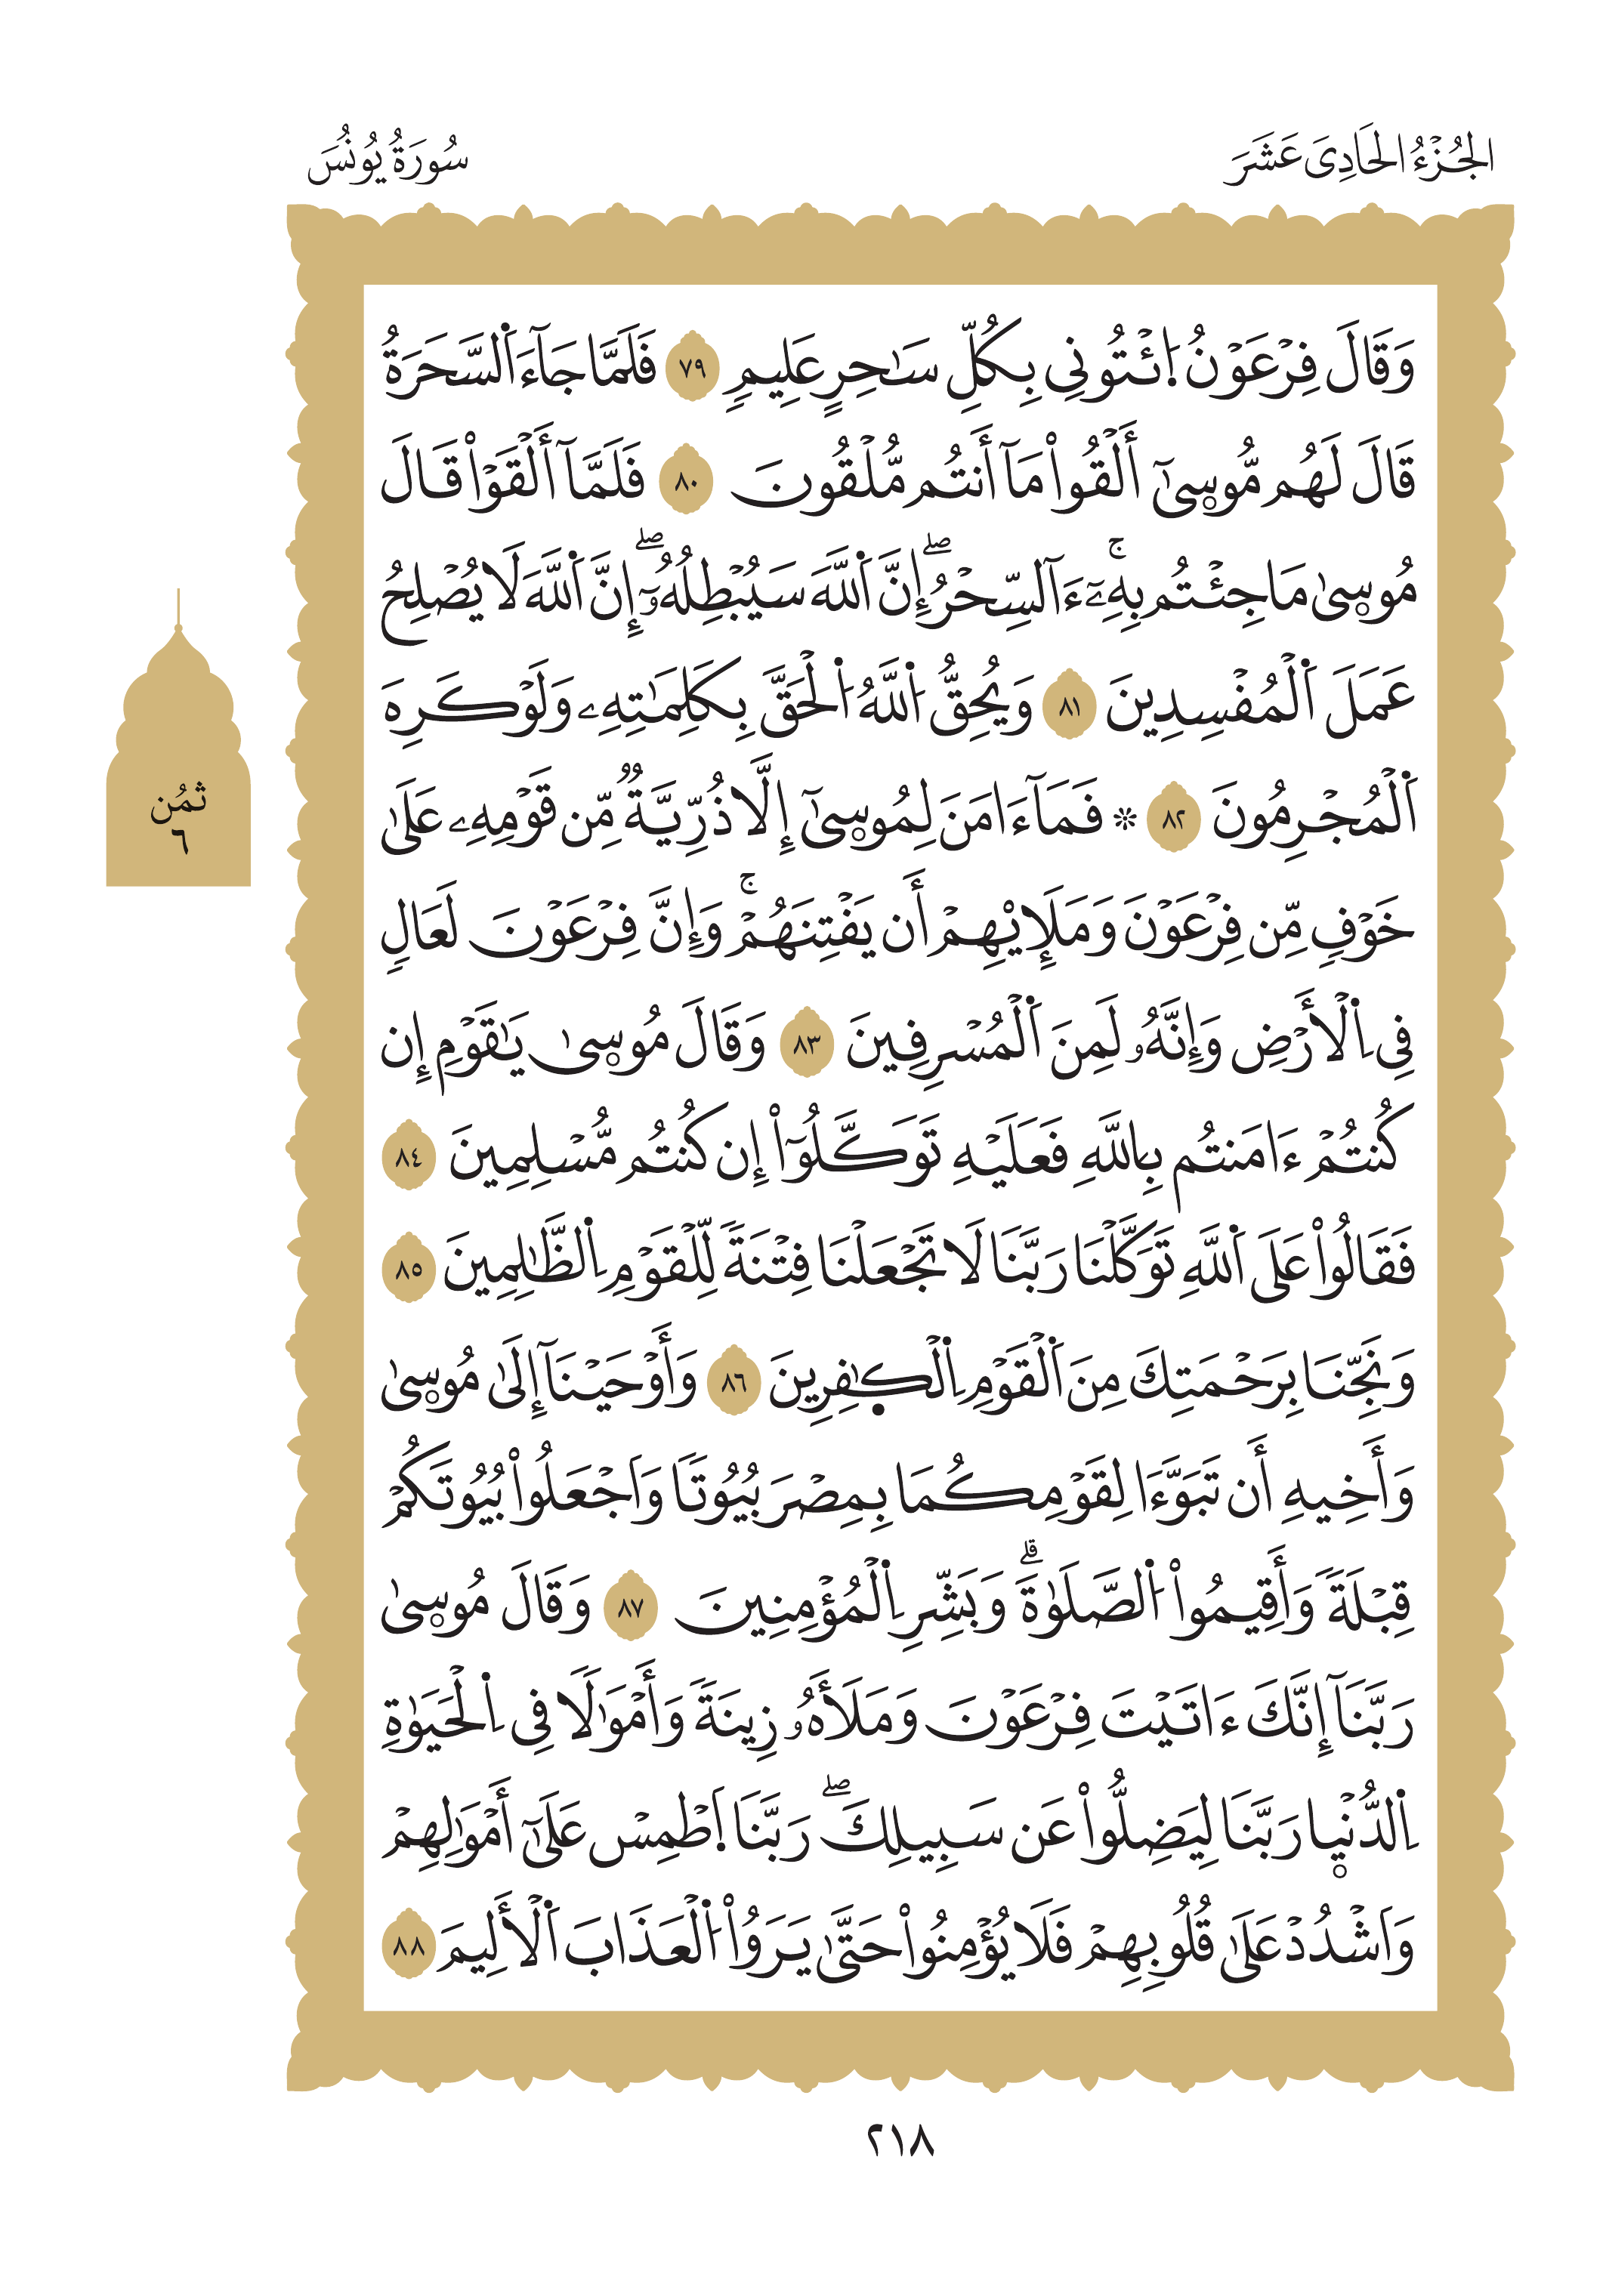 الجُزْءُ الحَادِىَ عَشَرَ
سُورَةُ يُونُسَ
وَقَالَ فِرْعَوْنُ اُ۪ئْتُونِى بِكُلِّ سَٰحِرٍ عَلِيمٍ ٧٩ فَلَمَّا جَآءَ اَ۬لسَّحَرَةُ
قَالَ لَهُم مُّوس۪ىٰٓ أَلْقُواْ مَآ أَنتُم مُّلْقُونَ ٨٠ فَلَمَّآ أَلْقَوْاْ قَالَ
مُوس۪ىٰ مَا جِئْتُم بِهِۦٓۚ ءَآلسِّحْرُۖ إِنَّ اَ۬للَّهَ سَيُبْطِلُهُۥٓۖ إِنَّ اَ۬للَّهَ لَا يُصْلِحُ
عَمَلَ اَ۬لْمُفْسِدِينَ ٨١ وَيُحِقُّ اُ۬للَّهُ اُ۬لْحَقَّ بِكَلِمَٰتِهِۦ وَلَوْ كَرِهَ
اَ۬لْمُجْرِمُونَ ٨٢ ۞ فَمَآ ءَامَنَ لِمُوس۪ىٰٓ إِلَّا ذُرِّيَّةٌ مِّن قَوْمِهِۦ عَلَىٰ
خَوْفٍ مِّن فِرْعَوْنَ وَمَلَإِيْهِمْ أَن يَفْتِنَهُمْۚ وَإِنَّ فِرْعَوْنَ لَعَالٍ
فِى اِ۬لْأَرْضِ وَإِنَّهُۥ لَمِنَ اَ۬لْمُسْرِفِينَ ٨٣ وَقَالَ مُوس۪ىٰ يَٰقَوْمِ إِن
كُنتُمْ ءَامَنتُم بِاللَّهِ فَعَلَيْهِ تَوَكَّلُوٓاْ إِن كُنتُم مُّسْلِمِينَ ٨٤
فَقَالُواْ عَلَى اَ۬للَّهِ تَوَكَّلْنَا رَبَّنَا لَا تَجْعَلْنَا فِتْنَةً لِّلْقَوْمِ اِ۬لظَّٰلِمِينَ ٨٥
وَنَجِّنَا بِرَحْمَتِكَ مِنَ اَ۬لْقَوْمِ اِ۬لْكٰ۪فِرِينَ ٨٦ وَأَوْحَيْنَآ إِلَىٰ مُوس۪ىٰ
وَأَخِيهِ أَن تَبَوَّءَا لِقَوْمِكُمَا بِمِصْرَ بُيُوتًا وَاَجْعَلُواْ بُيُوتَكُمْ
قِبْلَةً وَأَقِيمُواْ اُ۬لصَّلَوٰةَۗ وَبَشِّرِ اِ۬لْمُؤْمِنِينَ ٨٧ وَقَالَ مُوس۪ىٰ
رَبَّنَآ إِنَّكَ ءَاتَيْتَ فِرْعَوْنَ وَمَلَأَهُۥ زِينَةً وَأَمْوَٰلًا فِى اِ۬لْحَيَوٰةِ
اِ۬لدُّنْي۪ا رَبَّنَا لِيَضِلُّواْ عَن سَبِيلِكَۖ رَبَّنَا اَ۪طْمِسْ عَلَىٰٓ أَمْوَٰلِهِمْ
وَاَشْدُدْ عَلَىٰ قُلُوبِهِمْ فَلَا يُؤْمِنُواْ حَتَّىٰ يَرَوُاْ اُ۬لْعَذَابَ اَ۬لْأَلِيمَ ٨٨
ثُمُن
٦
٢١٨